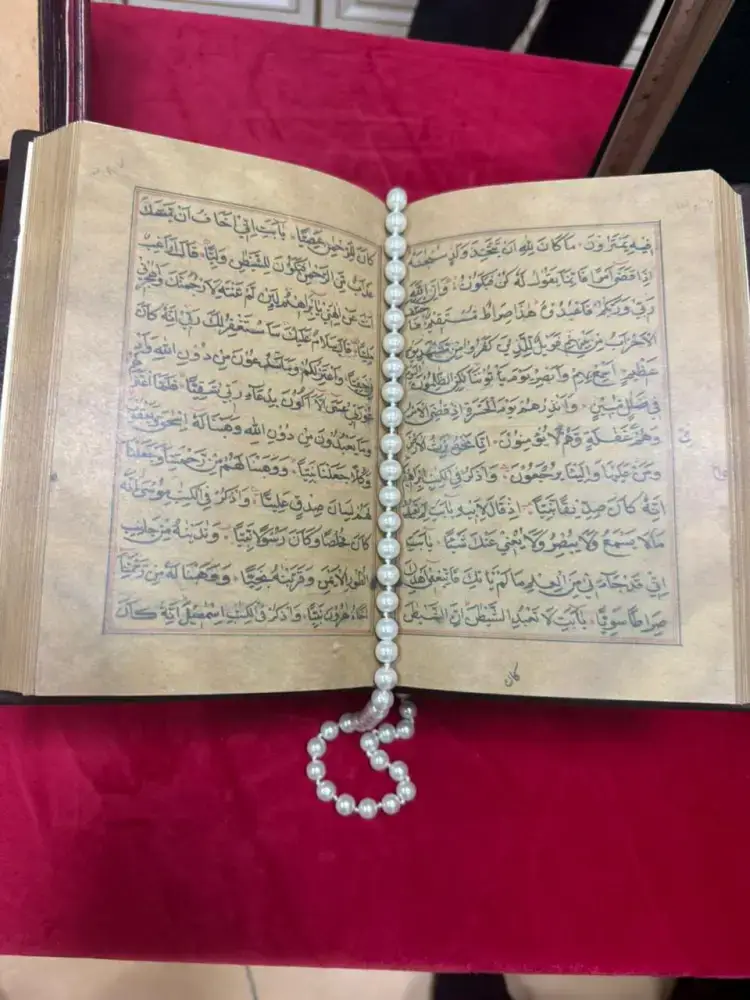 فِيهِ يَمْتَرُونَ مَا كَانَ لِلّٰهِ اَنْ يَتَّخِذَ وَلَدٍ
اِذَا قَضٰى اَمْرًا فَاِنَّمَا يَقُولُ لَهُ كُنْ فَيَكُونُ وَاِنَّ اللّٰهَ
رَبِّي وَرَبُّكُمْ فَاعْبُدُوهُ هٰذَا صِرَاطٌ مُسْتَقِيمٌ
الْاَحْزَابُ مِنْ بَيْنِهِمْ فَوَيْلٌ لِلَّذِينَ كَفَرُوا مِنْ مَشْهَدِ
عَظِيمٍ اَسْمِعْ بِهِمْ وَاَبْصِرْ يَوْمَ يَأْتُونَنَا لٰكِنِ الظّٰلِمُونَ
فِي ضَلٰلٍ مُبِينٍ وَاَنْذِرْهُمْ يَوْمَ الْحَسْرَةِ اِذْ قُضِيَ الْاَمْرُ
وَهُمْ غَفْلَةٍ وَهُمْ لَا يُؤْمِنُونَ اِنَّا نَحْنُ نَرِثُ الْاَرْضَ
وَمَنْ عَلَيْهَا وَاِلَيْنَا يُرْجَعُونَ وَاذْكُرْ فِي الْكِتٰبِ
اِنَّهُ كَانَ صِدِّيقًا نَبِيًّا اِذْ قَالَ لِاَبِيهِ يٰاَبَتِ لِمَ تَعْبُدُ
مَا لَا يَسْمَعُ وَلَا يُبْصِرُ وَلَا يُغْنِي عَنْكَ شَيْئًا يٰاَبَتِ
اِنِّي قَدْ جَاءَنِي مِنَ الْعِلْمِ مَا لَمْ يَأْتِكَ فَاتَّبِعْنِي اَهْدِكَ
صِرَاطًا سَوِيًّا يٰاَبَتِ لَا تَعْبُدِ الشَّيْطٰنَ اِنَّ الشَّيْطٰنَ
كان
كَانَ لِلرَّحْمٰنِ عَصِيًّا يٰاَبَتِ اِنِّي اَخَافُ اَنْ يَمَسَّكَ
عَذَابٌ مِنَ الرَّحْمٰنِ فَتَكُونَ لِلشَّيْطٰنِ وَلِيًّا قَالَ اَرَاغِبٌ
اَنْتَ عَنْ اٰلِهَتِي يٰاِبْرٰهِيمُ لَئِنْ لَمْ تَنْتَهِ لَاَرْجُمَنَّكَ وَاهْجُرْنِي
مَلِيًّا قَالَ سَلَامٌ عَلَيْكَ سَاَسْتَغْفِرُ لَكَ رَبِّي اِنَّهُ كَانَ
بِي حَفِيًّا وَاَعْتَزِلُكُمْ وَمَا تَدْعُونَ مِنْ دُونِ اللّٰهِ وَاَدْعُو
رَبِّي عَسٰى اَلَّا اَكُونَ بِدُعَاءِ رَبِّي شَقِيًّا فَلَمَّا اعْتَزَلَهُمْ
وَمَا يَعْبُدُونَ مِنْ دُونِ اللّٰهِ وَهَبْنَا لَهُ اِسْحٰقَ وَيَعْقُوبَ
وَكُلًّا جَعَلْنَا نَبِيًّا وَوَهَبْنَا لَهُمْ مِنْ رَحْمَتِنَا وَجَعَلْنَا
لَهُمْ لِسَانَ صِدْقٍ عَلِيًّا وَاذْكُرْ فِي الْكِتٰبِ مُوسٰى اِنَّهُ
كَانَ مُخْلَصًا وَكَانَ رَسُولًا نَبِيًّا وَنٰدَيْنٰهُ مِنْ جَانِبِ
الطُّورِ الْاَيْمَنِ وَقَرَّبْنٰهُ نَجِيًّا وَوَهَبْنَا لَهُ مِنْ رَحْمَتِنَا
اَخَاهُ هٰرُونَ نَبِيًّا وَاذْكُرْ فِي الْكِتٰبِ اِسْمٰعِيلَ اِنَّهُ كَانَ